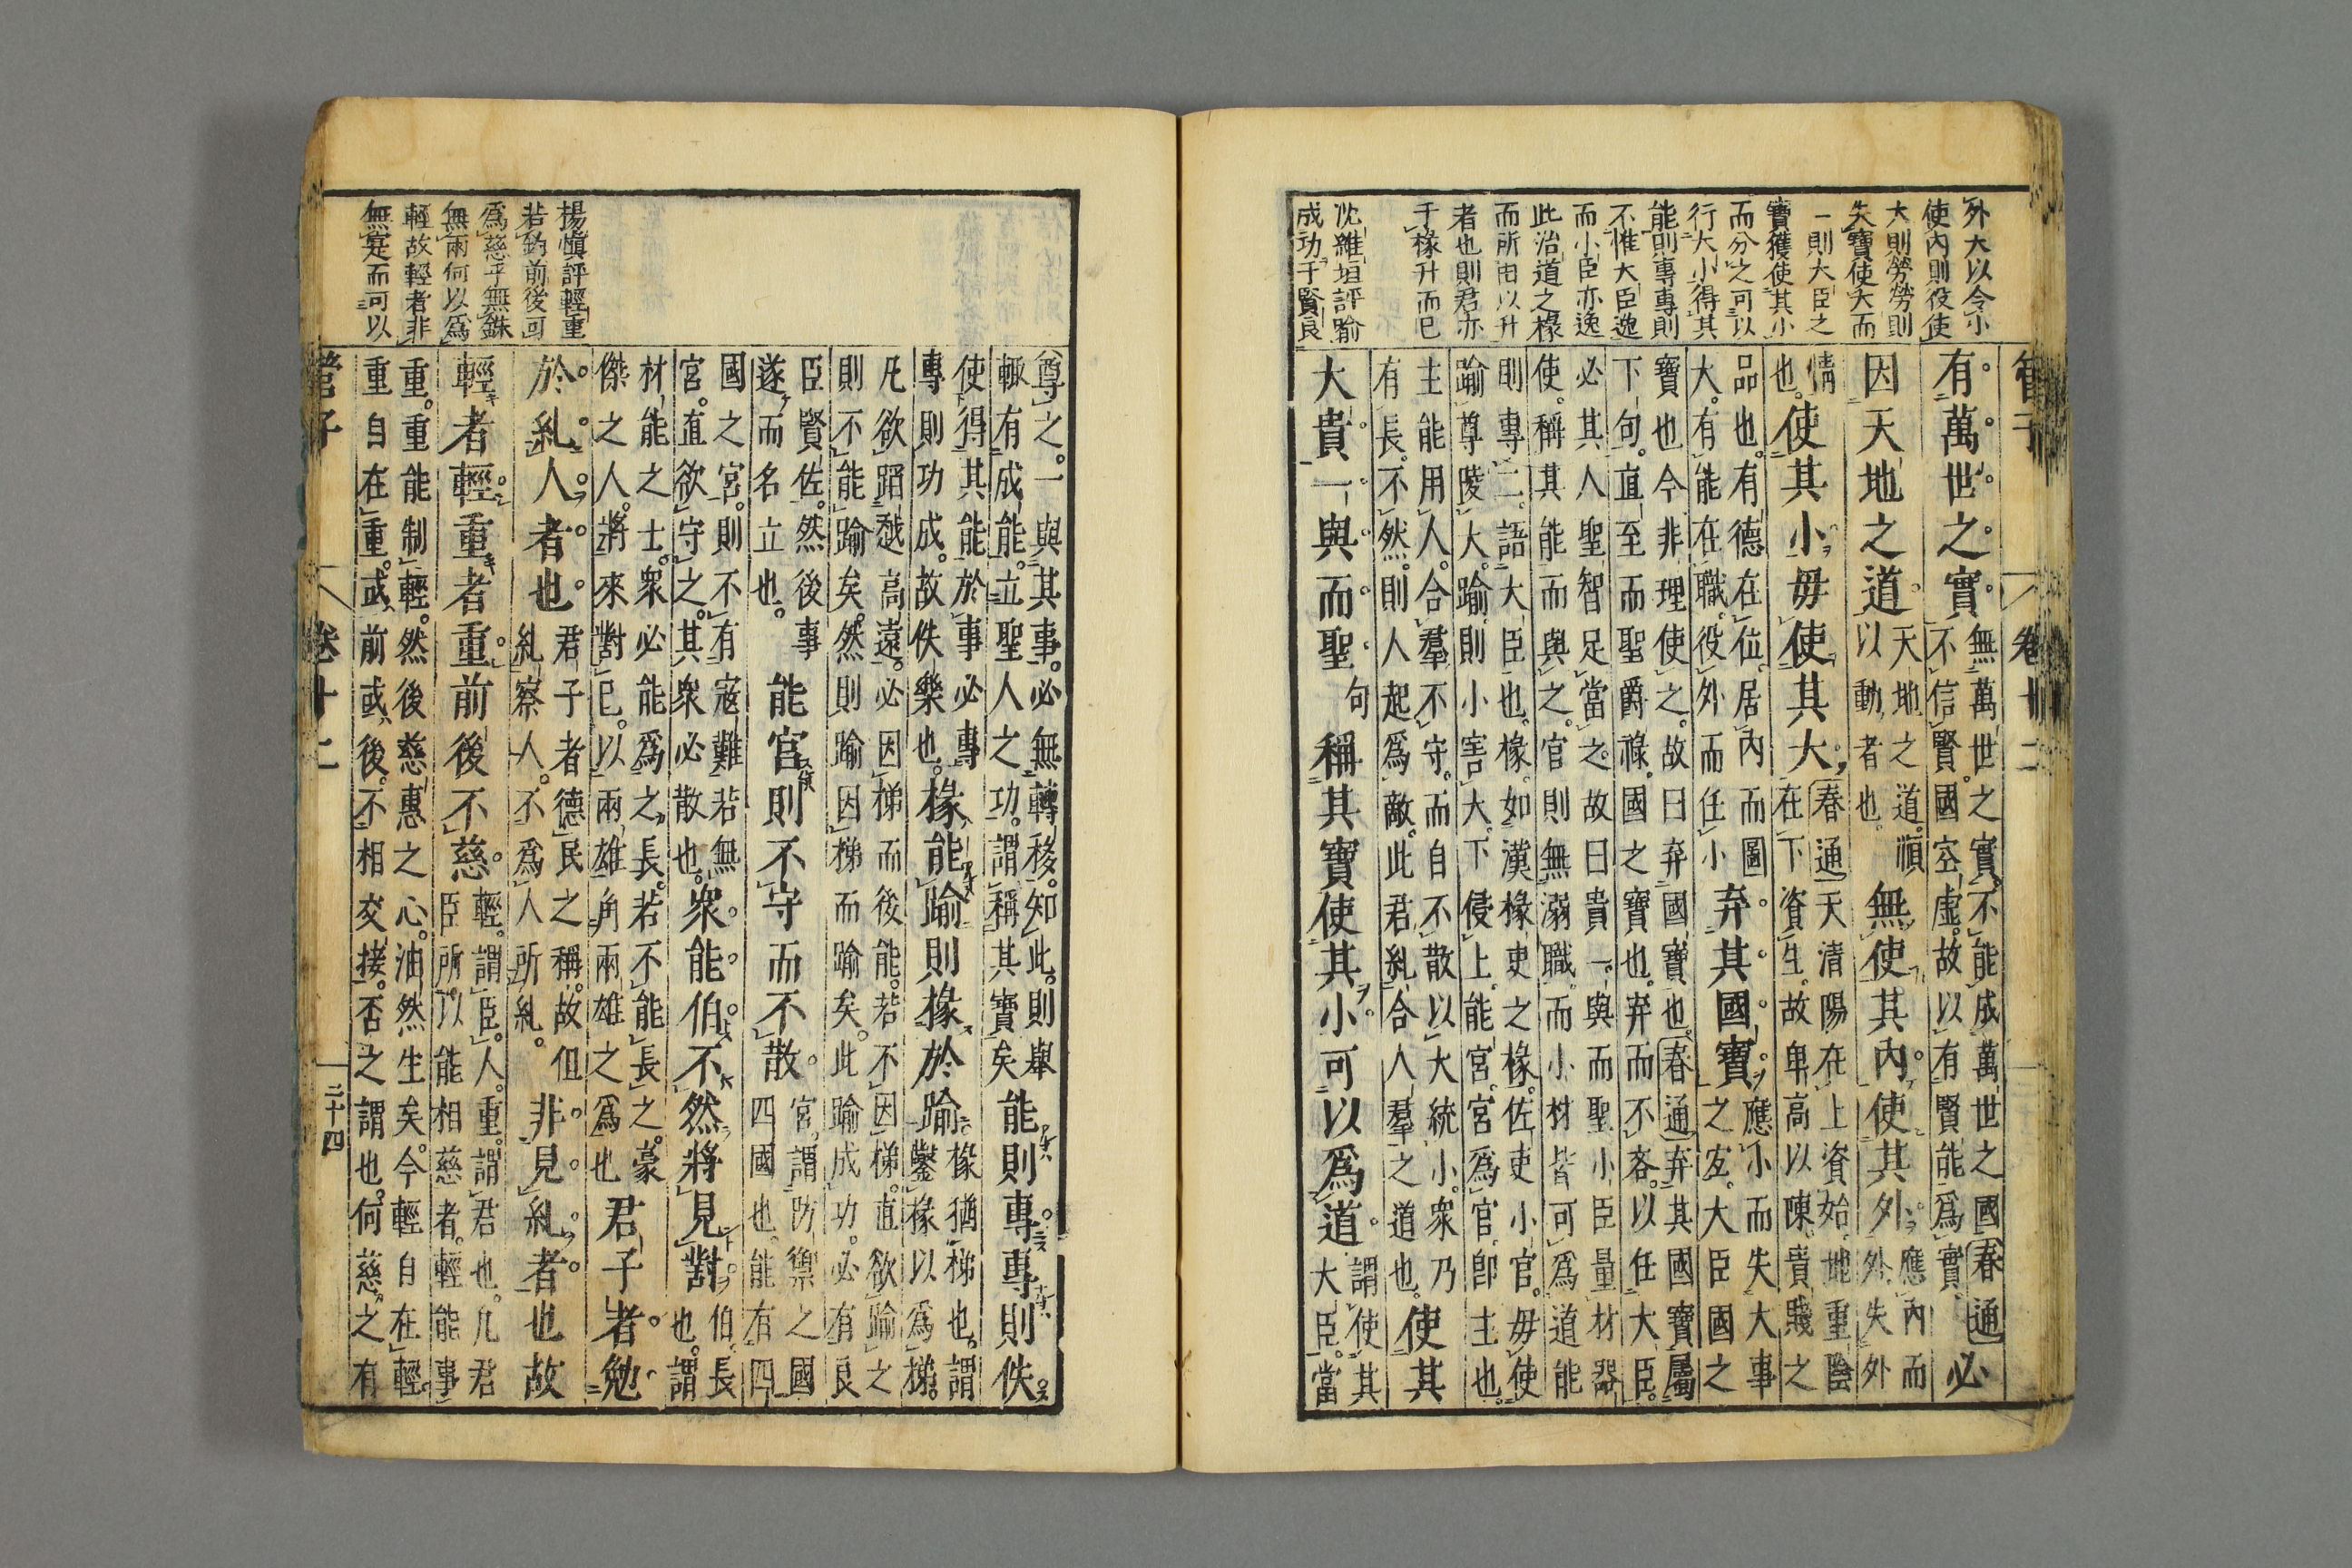 外大以令小
使內則役使
大則勞勞則
失寶使大而
一則大臣之
寶獲使其小
而分之可以
行大小得其
能則專專則
不惟大臣逸
而小臣亦逸
此治道之椽
而所由以升
者也則君亦
于椽升而已
沈維垣評踰
成功于賢良
管子 卷十二
有萬世之實 無萬世之實不能成萬世之國春通 不信賢國空虛故以有賢能爲實 必
因天地之道 天地之道順 以動者也 無使其內使其外 應內而 外失外
情 也 使其小毋使其大 春通天清陽在上資始地重陰 在下資生故卑高以陳貴賤之
品也有德在位居內而圖 大有能在職役外而任小 弃其國寶 應小而失大事 之宜大臣國之
寶也今非理使之故曰弃國寶也春通弃其國寶屬 下句直至而聖爵祿國之寶也弃而不吝以任大臣
必其人聖智足當之故曰貴一與而聖小臣量材器 使稱其能而與之官則無溺職而小材皆可爲道能
則專二語大臣也椽如漢椽吏之椽佐吏小官毋使 踰尊陵大踰則小害大下侵上能宮宮爲官卽主也
主能用人合羣不守而自不散以大統小衆乃 有長不然則人起爲敵此君糺合人羣之道也 使其
大貴一與而聖 句 稱其寶使其小可以爲道 謂使其 大臣當
楊愼評輕重
若鈞前後可
爲慈乎無銖
無兩何以爲
輕故輕者非
無寔而可以
尊之一與其事必無轉移知此則舉 輒有成能立聖人之功謂稱其寶矣 能則專專則佚
使得其能於事必專 專則功成故佚樂也 椽能踰則椽於踰 椽猶梯也謂 鑿椽以爲梯
凡欲蹈越高遠必因梯而後能若不因梯直欲踰之 則不能踰矣然則踰因梯而踰矣此踰成功必有良
臣賢佐然後事 遂而名立也 能宮則不守而不散 宮謂防禦之國 四國也能有四
國之宮則不有寇難若無 宮直欲守之其衆必散也 衆能伯不然將見對 伯長 也謂
材能之士衆必能爲之長若不能長之豪 傑之人將來對已以兩雄角兩雄之爲也 君子者勉
於糺人者也 君子者德民之稱故但 糺察人不爲人所糺 非見糺者也故
輕者輕重者重前後不慈 輕謂臣人重謂君也凡君 臣所以能相慈者輕能事
重重能制輕然後慈惠之心油然生矣今輕自在輕 重自在重或前或後不相交接否之謂也何慈之有
管子 卷十二 二十四